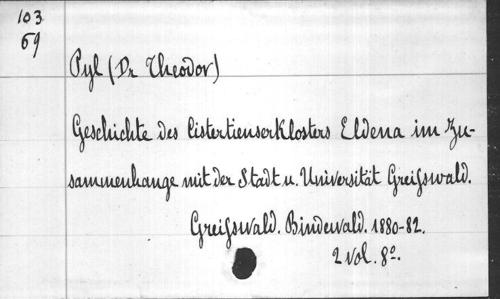 103
69
Pyl (Dr Theodor)
Geschichte des Cistertienserklosters Eldena im Zu-
sammenhange mit der Stadt u. Universität Greifswald.
Greifswald. Bindewald. 1880-82.
2 Vol. 8º.